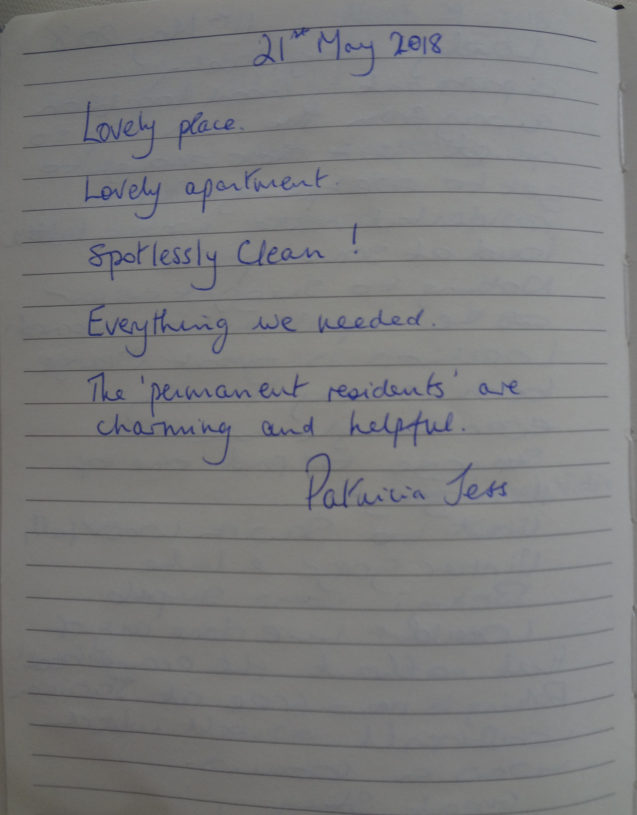 21st May 2018
Lovely place.
Lovely apartment.
Spotlessly Clean !
Everything we needed.
The 'permanent residents' are
charming and helpful.
Patricia Jess